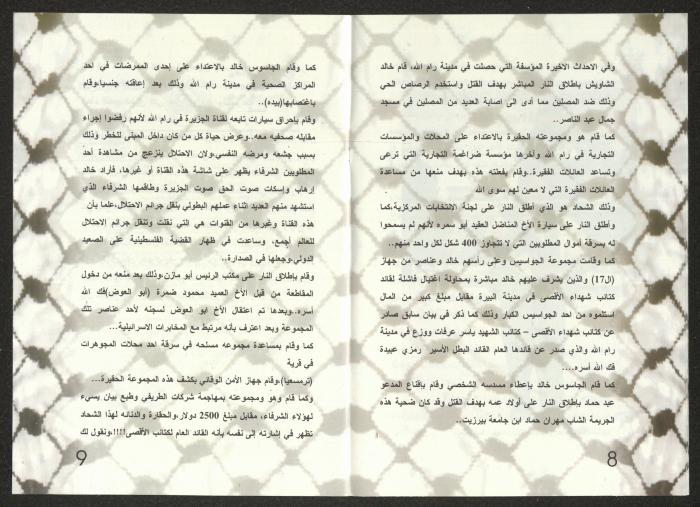 وفي الاحداث الاخيرة المؤسفة التي حصلت في مدينة رام الله، قام خالد
الشاويش باطلاق النار المباشر بهدف القتل واستخدم الرصاص الحي
وذلك ضد المصلين مما أدى الى اصابة العديد من المصلين في مسجد
جمال عبد الناصر..
كما قام هو ومجموعته الحقيرة بالاعتداء على المحلات والمؤسسات
التجارية في رام الله وآخرها مؤسسة ضراغمة التجارية التي ترعى
وتساعد العائلات الفقيرة..وقام بفعلته هذه بهدف منعها من مساعدة
العائلات الفقيرة التي لا معين لهم سوى الله
وذلك الشحاد هو الذي أطلق النار على لجنة الانتخابات المركزية،كما
وأطلق النار على سيارة الأخ المناضل العقيد أبو سمره لأنهم لم يسمحوا
له بسرقة أموال المطلوبين التي لا تتجاوز 400 شكل لكل واحد منهم..
كما وقامت مجموعة الجواسيس وعلى رأسهم خالد وعناصر من جهاز
(ال17) والذين يشرف عليهم خالد مباشرة بمحاولة اغتيال فاشلة لقائد
كتائب شهداء الأقصى في مدينة البيرة مقابل مبلغ كبير من المال
استلموه من احد الجواسيس الكبار وذلك كما ذكر في بيان سابق صادر
عن كتائب شهداء الأقصى – كتائب الشهيد ياسر عرفات ووزع في مدينة
رام الله والذي صدر عن قائدها العام القائد البطل الأسير رمزي عبيدة
فك الله أسره....
كما قام الجاسوس خالد بإعطاء مسدسه الشخصي وقام بإقناع المدعو
عبد حماد باطلاق النار على أولاد عمه بهدف القتل وقد كان ضحية هذه
الجريمة الشاب مهران حماد ابن جامعة بيرزيت..
8
كما وقام الجاسوس خالد بالاعتداء على إحدى الممرضات في احد
المراكز الصحية في مدينة رام الله وذلك بعد إعاقته جنسيا،وقام
باغتصابها(بيده)..
وقام بإحراق سيارات تابعه لقناة الجزيرة في رام الله لأنهم رفضوا إجراء
مقابله صحفيه معه..وعرض حياة كل من كان داخل المبنى للخطر وذلك
بسبب جشعه ومرضه النفسي.ولان الاحتلال ينزعج من مشاهدة أحد
المطلوبين الشرفاء يظهر على شاشة هذه القناة أو غيرها، فأراد خالد
إرهاب وإسكات صوت الحق صوت الجزيرة وطاقمها الشرفاء الذي
استشهد منهم العديد اثناء عملهم البطولي بنقل جرائم الاحتلال،علما بأن
هذه القناة وغيرها من القنوات هي التي نقلت وتنقل جرائم الاحتلال
للعالم اجمع، وساعدت في ظهار القضية الفلسطينية على الصعيد
الدولي،وجعلها في الصدارة..
وقام باطلاق النار على مكتب الرئيس أبو مازن،وذلك بعد منعه من دخول
المقاطعة من قبل الأخ العميد محمود ضمرة (أبو العوض)فك الله
أسره..وبعدها تم اعتقال الأخ ابو العوض لسجنه لأحد عناصر تلك
المجموعة وبعد اعترف بأنه مرتبط مع المخابرات الاسرائيلية...
كما وقام بمساعدة مجموعه مسلحه في سرقة احد محلات المجوهرات
في قرية
(ترمسعيا)،وقام جهاز الأمن الوقائي بكشف هذه المجموعة الحقيرة...
وكما قام وهو ومجموعته بمهاجمة شركات الطريفي وطبع بيان يسيء
لهؤلاء الشرفاء، مقابل مبلغ 2500 دولار.والحقارة والدناءه لهذا الشحاد
تظهر في إشارته إلى نفسه بأنه القائد العام لكتائب الأقصى!!!!.ونقول لك
9